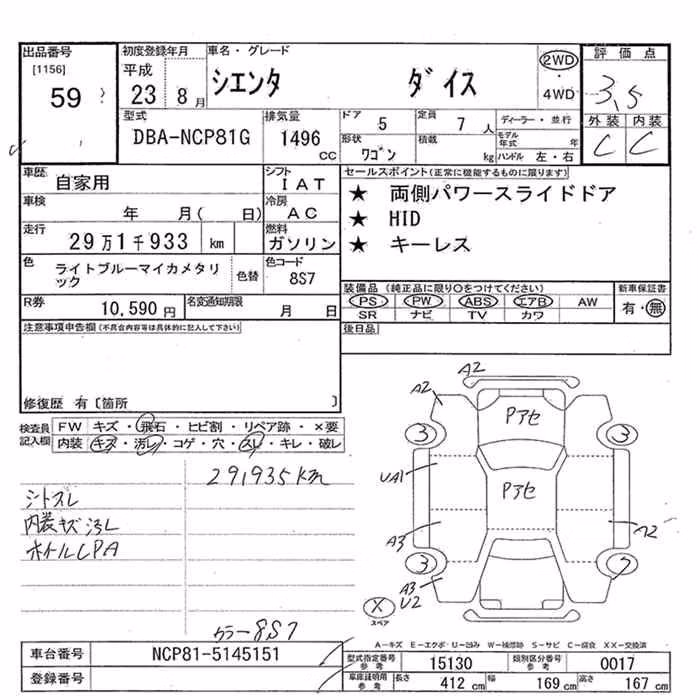 出品番号
[1156]
59
初度登録年月
平成
23 8月
車名・グレード
シエンタ ダイス
2WD
・
4WD
評価点
3.5
外装 内装
C C
型式
DBA-NCP81G
排気量
1496
cc
ドア 5
定員 7人
形状 ワゴン
積載 kg
ディーラー・並行
モデル年式 年
ハンドル 左・右
車歴
自家用
シフト
IAT
車検
年 月( 日)
冷房
AC
走行
29万1千933 km
燃料
ガソリン
色
ライトブルーマイカメタリック
色替
色コード
8S7
R券
10,590円
名変通知期限
月 日
セールスポイント(正常に機能するものに限ります)
★ 両側パワースライドドア
★ HID
★ キーレス
装備品(純正品に限り○をつけてください)
PS PW ABS エアB AW
SR ナビ TV カワ
新車保証書
有・無
後日品
注意事項申告欄(不具合内容等は具体的に記入して下さい)
修復歴 有〔箇所 〕
検査員記入欄
FW キズ・飛石・ヒビ割・リペア跡・×要
内装 キズ・汚レ・コゲ・穴・スレ・キレ・破レ
291935km
シトスレ
内装キズ汚レ
カラー8S7
A2
A2
Pアセ
3
3
UA1
Pアセ
A3
A2
3
A3
U2
X
スペア
A-キズ E-エクボ U-凹み W-補修跡 S-サビ C-腐食 XX-交換済
車台番号
NCP81-5145151
登録番号
型式指定番号参考
15130
類別区分番号参考
0017
車庫証明用参考
長さ 412 cm
幅 169 cm
高さ 167 cm